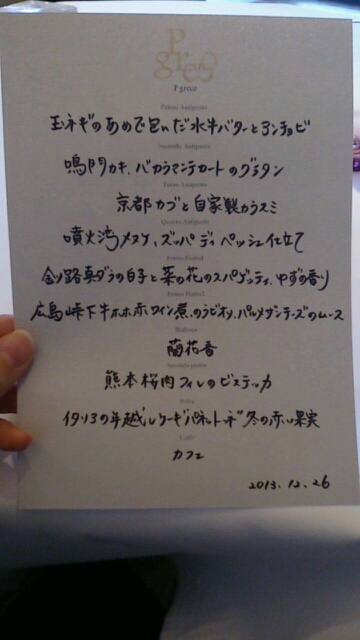 P greco
P greco
Primo Antipasto
玉ネギのあめで包んだ水牛バターとアンチョビ
Secondo Antipasto
鳴門カキ、バカラマンテカートのグラタン
Terzo Antipasto
京都カブと自家製カラスミ
Quarto Antipasto
噴火湾メヌケ、ズッパ ディ ペッシェ仕立て
Primo Piatto1
釧路真ダラの白子と菜の花のスパゲッティ、ゆずの香り
Primo Piatto2
広島峠下牛ホホ赤ワイン煮、のラビオリ、パルメザンチーズのムース
蘭花香
Secondo piatto
熊本桜肉フィレのビステッカ
Dolce
イタリアの年越しケーキ"パネットーネ" 冬の赤い果実
Caffè
カフェ
2013.12.26